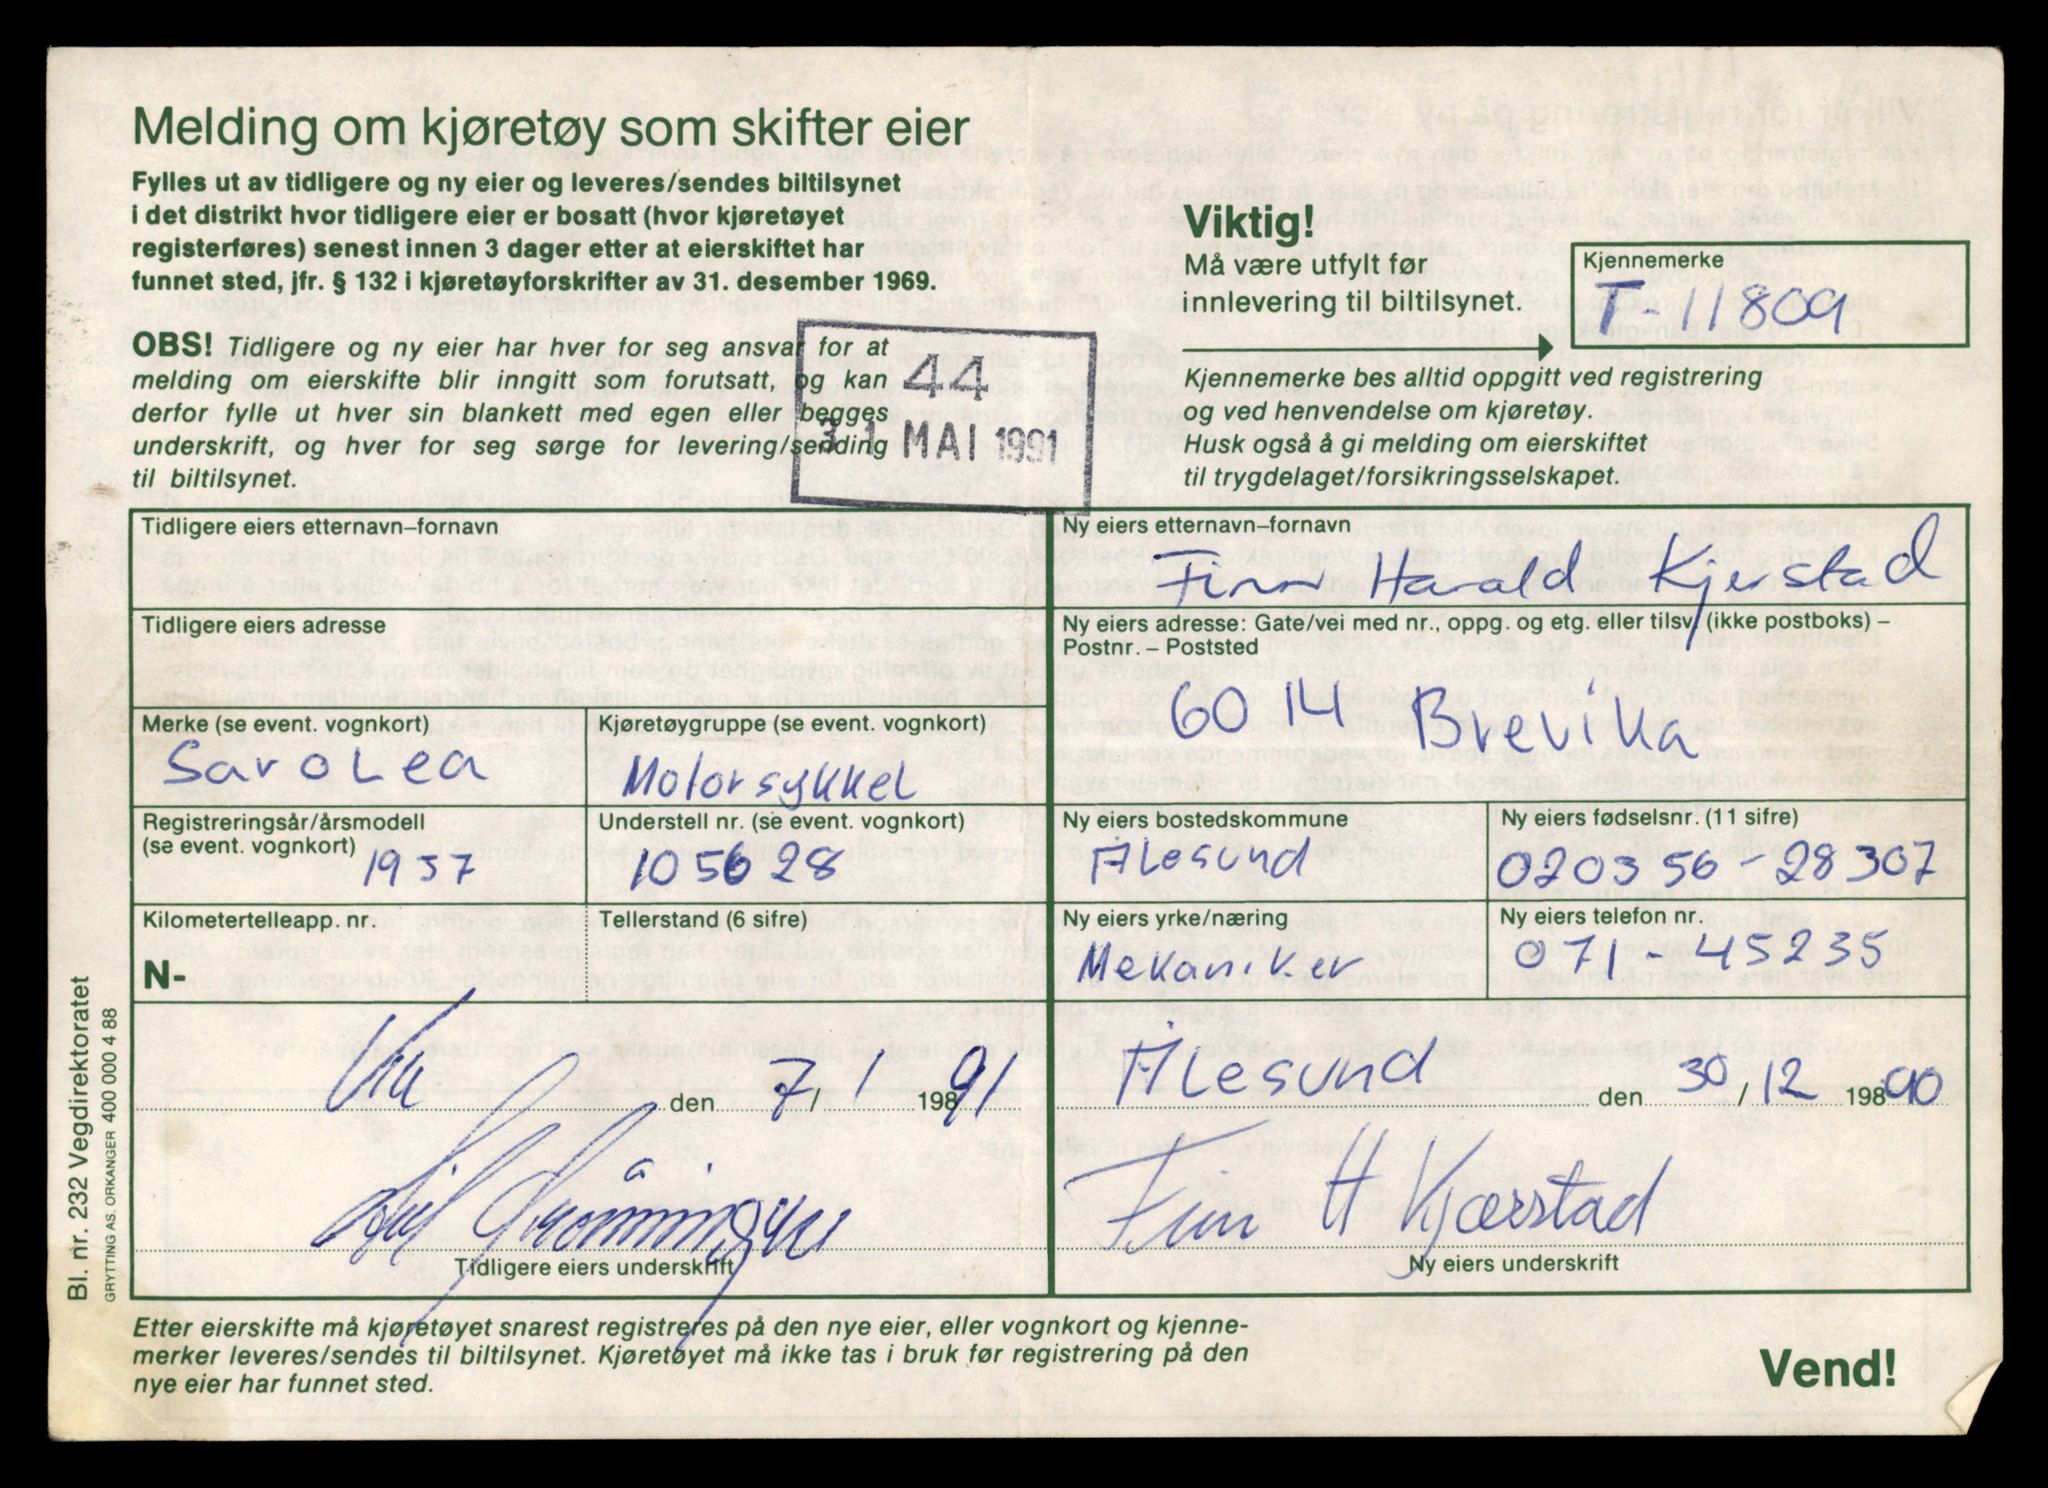 Melding om kjøretøy som skifter eier
Fylles ut av tidligere og ny eier og leveres/sendes biltilsynet
i det distrikt hvor tidligere eier er bosatt (hvor kjøretøyet
registerføres) senest innen 3 dager etter at eierskiftet har
funnet sted, jfr. § 132 i kjøretøyforskrifter av 31. desember 1969.
OBS! Tidligere og ny eier har hver for seg ansvar for at
melding om eierskifte blir inngitt som forutsatt, og kan
derfor fylle ut hver sin blankett med egen eller begges
underskrift, og hver for seg sørge for levering/sending
til biltilsynet.
44
31 MAI 1991
Viktig!
Må være utfylt før
innlevering til biltilsynet.
Kjennemerke
T-11809
Kjennemerke bes alltid oppgitt ved registrering
og ved henvendelse om kjøretøy.
Husk også å gi melding om eierskiftet
til trygdelaget/forsikringsselskapet.
Tidligere eiers etternavn–fornavn
Tidligere eiers adresse
Merke (se event. vognkort)
SaroLea
Kjøretøygruppe (se event. vognkort)
Motorsykkel
Registreringsår/årsmodell
(se event. vognkort) 1957
Understell nr. (se event. vognkort)
105628
Kilometertelleapp. nr.
N-
Tellerstand (6 sifre)
den 7/1 1991
Tidligere eiers underskrift
Ny eiers etternavn–fornavn
Finn Harald Kjerstad
Ny eiers adresse: Gate/vei med nr., oppg. og etg. eller tilsv. (ikke postboks) –
Postnr. – Poststed
6014 Brevika
Ny eiers bostedskommune
Ålesund
Ny eiers fødselsnr. (11 sifre)
020356-28307
Ny eiers yrke/næring
Mekaniker
Ny eiers telefon nr.
071-45235
Ålesund den 30/12 19890
Finn H Kjærstad
Ny eiers underskrift
Etter eierskifte må kjøretøyet snarest registreres på den nye eier, eller vognkort og kjenne-
merker leveres/sendes til biltilsynet. Kjøretøyet må ikke tas i bruk før registrering på den
nye eier har funnet sted.
Vend!
Bl. nr. 232 Vegdirektoratet
GRYTTING AS. ORKANGER 400 000 4 88